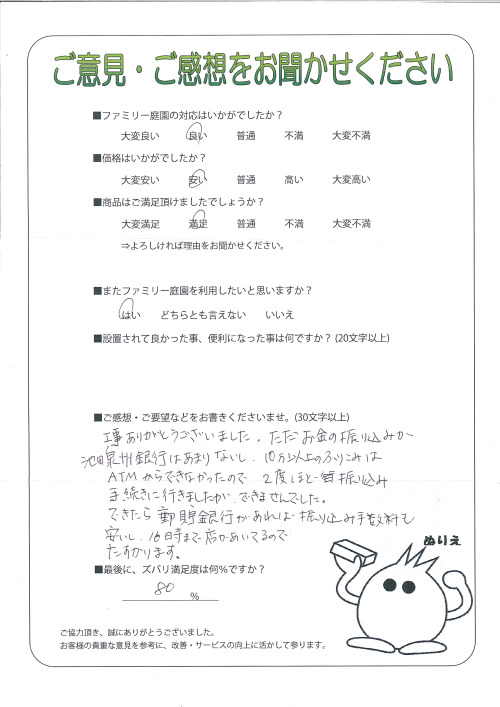 ご意見・ご感想をお聞かせください
■ファミリー庭園の対応はいかがでしたか？
大変良い 良い 普通 不満 大変不満
■価格はいかがでしたか？
大変安い 安い 普通 高い 大変高い
■商品はご満足頂けましたでしょうか？
大変満足 満足 普通 不満 大変不満
⇒よろしければ理由をお聞かせください。
■またファミリー庭園を利用したいと思いますか？
はい どちらとも言えない いいえ
■設置されて良かった事、便利になった事は何ですか？(20文字以上)
■ご感想・ご要望などをお書きくださいませ。(30文字以上)
工事ありがとうございました。ただお金の振り込みが
池田泉州銀行はあまりないし、10万以上のふりこみは
ATMからできなかったので 2度ほど 振り込み
手続きに行きましたが、できませんでした。
できたら郵貯銀行があれば振り込み手数料も
安いし、16時まで店があいてるので
たすかります。
■最後に、ズバリ満足度は何%ですか？
80 %
ぬりえ
ご協力頂き、誠にありがとうございました。
お客様の貴重な意見を参考に、改善・サービスの向上に活かして参ります。